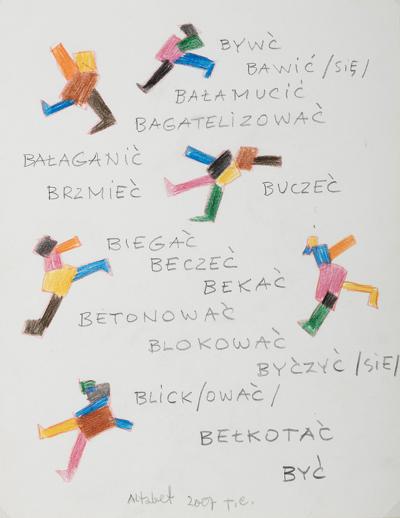 BYWĆ
BAWIĆ /SIĘ/
BAŁAMUCIĆ
BAGATELIZOWAĆ
BAŁAGANIĆ
BRZMIEĆ
BUCZEĆ
BIEGAĆ
BECZEĆ
BEKAĆ
BETONOWAĆ
BLOKOWAĆ
BYĆZYĆ /SIĘ/
BLICK/OWAĆ/
BEŁKOTAĆ
BYĆ
Alfabet 2007 T.C.